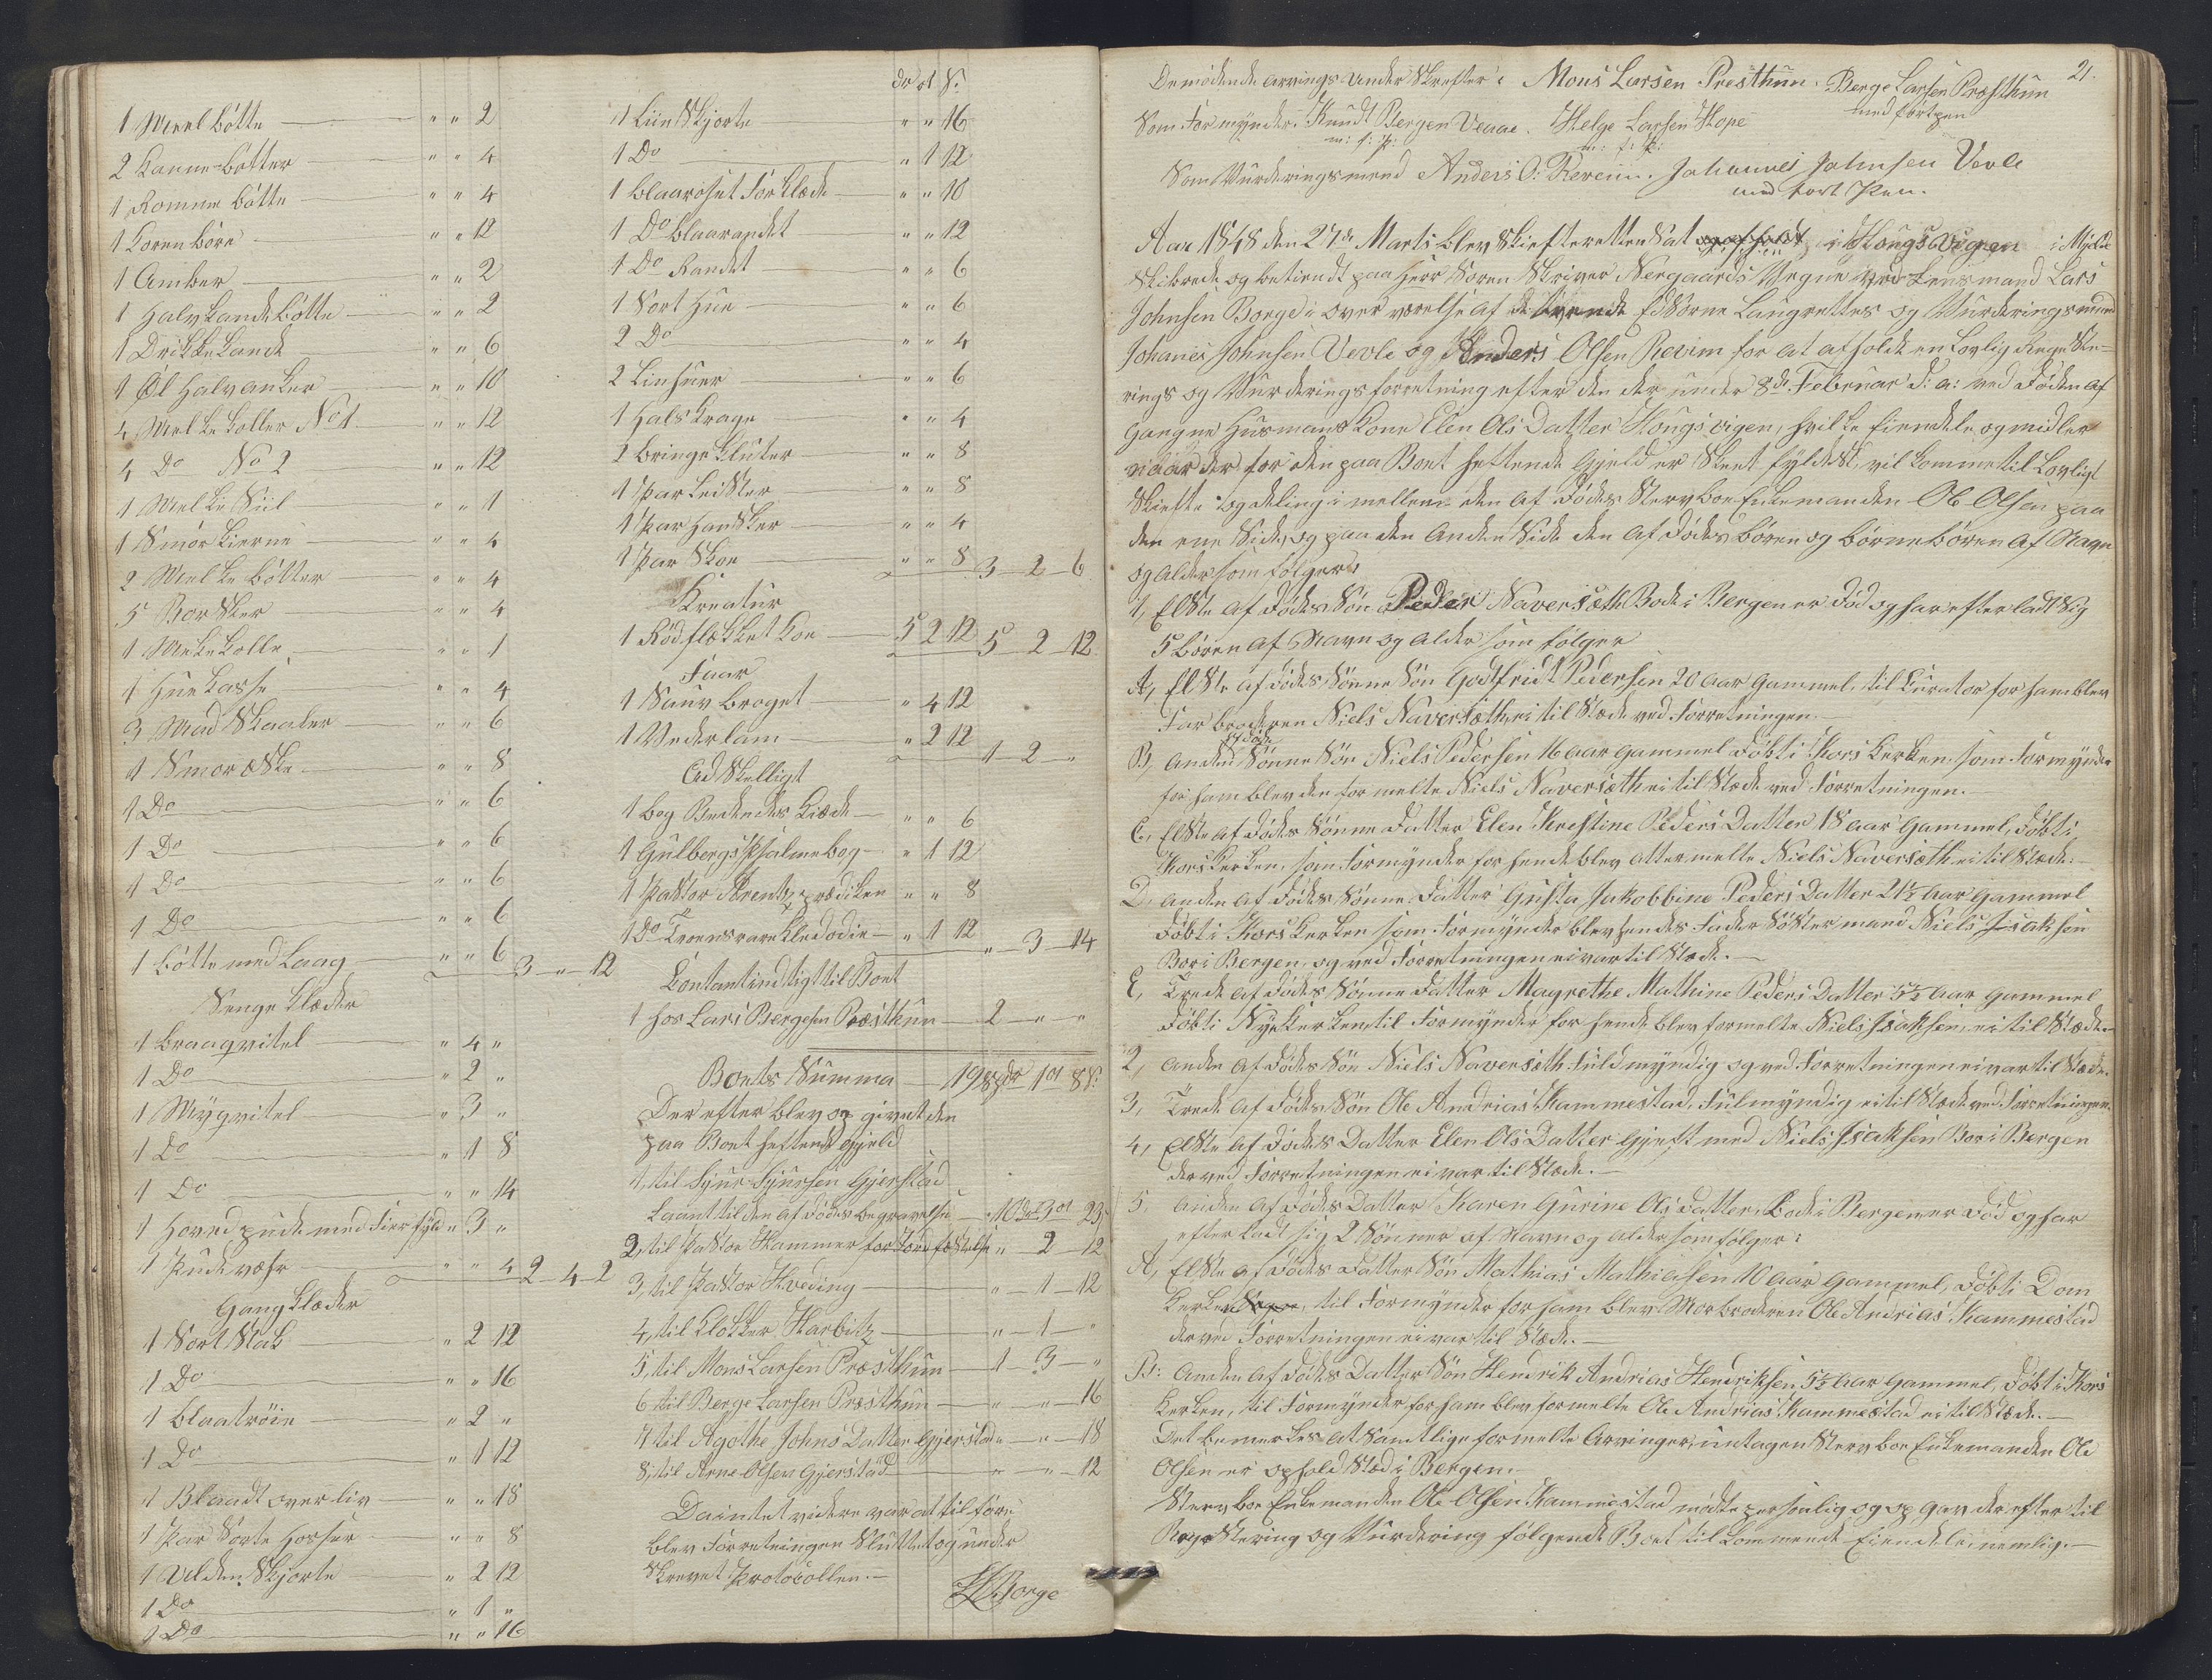 1 Meel bötte " " 2
2 Kanne-bötter " " 4
1 Romme bötte " " 4
1 Koren böre " " 12
1 Amber " " 2
1 Halvkande bötte " " 2
1 Drikke kande " " 6
1 Øl halvanker " " 10
4 Melkekoller No 1 " " 12
4 Do No 2 " " 12
1 Melke Siil " " 1
1 Smörkierne " " 4
2 Melke bötter " " 4
5 Borsker " " 4
1 Mekekolle " " 1
1 Huekasse " " 4
3 Mad Skaaler " " 6
1 Smoræske " " 8
1 Do " " 6
1 Do " " 6
1 Do " " 6
1 Do " " 6
1 bötte med Laag " " 6 3 " 12
Senge Klæder
1 braaqvitel " 4 "
1 Do " 2 "
1 Mÿgvitel " 3 "
1 Do " 1 8
1 Do " " 14
1 Hovedpude med Fierfyld " 3 "
1 Pudevahr " " 4 2 4 2
Gangklæder
1 Sort Stak " 2 12
1 Do " " 16
1 blaatröie " 2 "
1 Do " 1 12
1 Blaadt overliv " " 18
1 Par Sorte Hosser " " 8
1 Ulden Skjorte " 2 12
1 Do " 1 "
1 Do " " 16
Dr ort S:
1 Liin Skjorte " " 16
1 Do " 1 12
1 blaaroset Forklæde " " 10
1 Do blaarandet " " 12
1 Do Randet " " 6
1 Sort Hue " " 6
2 Do " " 4
2 Linhuer " " 6
1 Halskrage " " 4
2 bringeKluter " " 8
1 Par Leister " " 8
1 Par Handsker " " 4
1 Par Skoe " " 8 3 2 6
Kreatur
1 Rödflækket Koe 5 2 12 5 2 12
Faar
1 Sauv broget " 4 12
1 Vederlam " 2 12 1 2 "
Ad Skelligt
1 bog Bedendes Kiæde " " 6
1 Gulbergs Psalmebog " 1 12
1 Pastor Arentz prædiken " " 8
1 Do Troens rare Kledodie " 1 12 " 3 14
Contant indtigt til Boet
1 hos Lars Bergesen Præsthun 2 " "
Boets Summa 19 Spdr 1 ort 8 S:
Derefter blev op givet den
paa Boet heftende Gjeld
1, til Sjur Sjursen Gjerstad
Laant til den afdødes begravelse 10 dr 3 ort 23 S
2, til Pastor Hammer for Jordfæstelse " 2 12
3, til Pastor Hveding " 1 12
4, til Klokker Harbitz " 1 "
5, til Mons Larsen Præsthun 1 3 "
6 til Berge Larsen Præsthun " " 16
7 til Agothe Johns Datter Gjerstad " " 18
8, til Arne Olsen Gjerstad " " 12
Da intet videre var at tilføre
blev Forretningen Sluttet og under
Skrevet Protocollen.
LJBorge
21.
De mødende arvings underskrefter: Mons Larsen Presthun. Berge Larsen Præsthun
medførtpen
Som Formynder. Knudt Bergen Veaae. Helge Larsen Hope
m: f: P: m: f: P:
Som Vurderingsmend Anders O: Reveim. Johannes Johnsen Vevle
med fort Pen.
Aar 1848 den 27de Marts blev Skiftteretten Sat i Kongsvigen i Mjelde
Skibrede og betiendt paa Herr Soren Skriver Nergaards Vegne ved Lensmand Lars
Johnsen Borge i overværelse af de tvende Edsorne Laugrettes og Vurderingsmænd
Johanes Johnsen Vevle og Anders Olsen Revim for at afholde en Lovlig Rege Ste-
rings og Vurderings forretning efter den der under 8de Februar d: a: ved Døden af
gangne Husmans Kone Elen Ols Datter Kongsvigen, hvilke Eiendele og midler
naar der for den paa Boet heftende Gjeld er Skeet fyldest, vil komme til Lovligt
Skifte og deling i mellem den af Dødes Stervboe Enkemanden Ole Olsen paa
den ene Side, og paa den Anden Side den af Dødes Børen og børnebøren af Navn
og alder som følger:
1, Elste af Dødes Søn Peder Naversæth Bode i Bergen er Død og har efterladt sig
5 Børen af Navn og alder som følger
A, Elste af Dødes Sønne Søn Godtfridt Pedersen 20 aar gammel, til Kurator for ham blev
Farbroderen Niels Naversæth, ei til Stæde ved Forretningen.
B, anden af døde Sønne Søn Niels Pedersen 16 aar gammel Døbt i Kors Kerken, som Formynder
for ham blev den formelte Niels Naversæth ei til Stæde ved Forretningen.
C, Elste af Dødes Sønne Datter Elen Kristine Peders Datter 18 aar gammel, Døbt i
Kors Kerken, som Formynder for hende blev atter melte Niels Naversæth ei til Stæde.
D, anden af Dødes Sønne Datter Gusta Jakobbine Peders Datter 21½ Aar gammel
Døbt i Kors Kerken som Formynder blev hendes Fader Søster mand Niels Isaksen
Bor i Bergen, og ved Forretningen ei var til Stæde.
E, Trede af Dødes Sønne Datter Magrethe Mathine Peders Datter 5½ Aar gammel
Døbt i Nykerken til Formynder for hende blev formelte Niels Isaksen, ei til Stæde.
2, anden af Dødes Søn Niels Naversæth Fuldmyndig og ved Forretningen ei var til Stæde.
3, Trede af Dødes Søn Ole Andrias Hammestad, Fulmyndig ei til Stæde ved Forretningen.
4, Elste af Dødes Datter Elen Ols Datter gjeft med Niels Isaksen Bor i Bergen
der ved Forretningen ei var til Stæde.
5, anden af Dødes Datter Karen Gurine Ols Datter, Bode i Bergen, er Død og har
efter ladt sig 2 Sønner af Navn og alder som følger:
A, Elste af Dødes Datter Søn Mathias Mathiesen 10 aar gammel, Døbt i Dom
Kerken, til Formynder for ham blev Morbroderen Ole Andrias Hammestad
der ved Forretningen ei var til Stæde.
B: anden af Dødes Datter Søn Hendrik Andrias Hendriksen 5½ Aar gammel, Døbt i Kors
Kerken, til Formynder for ham blev formelte Ole Andrias Hammestad ei til Stæde.
Det bemerkes at Samtlige formelte Arvinger, untagen Stervboe Enkemanden Ole
Olsen er ophold Stæd i Bergen.
Stervboe Enkemanden Ole Olsen Hammestad mødte personlig og op gav derefter til
Rege Stering og Vurdering følgende Boet til kommende Eiendele, nemlig.